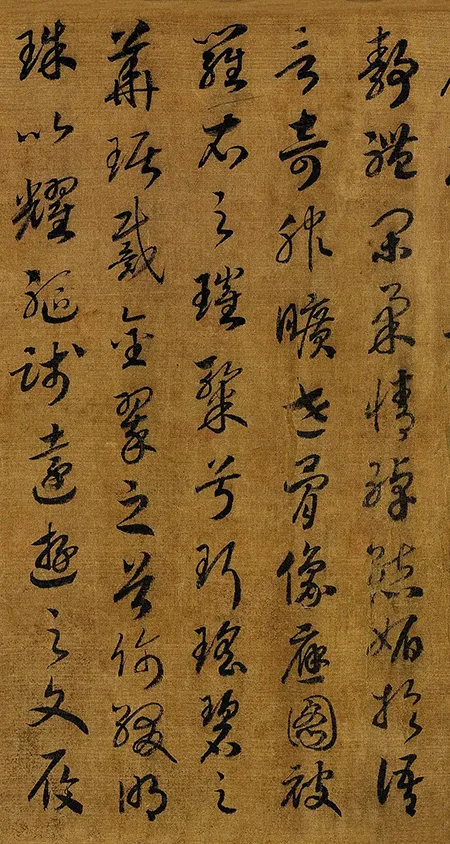 靜體閑柔情綽態媚於語
言奇服曠世骨像應圖被
羅衣之璀粲兮珥瑤碧之
華琚戴金翠之首飾綴明
珠以耀軀踐遠遊之文履